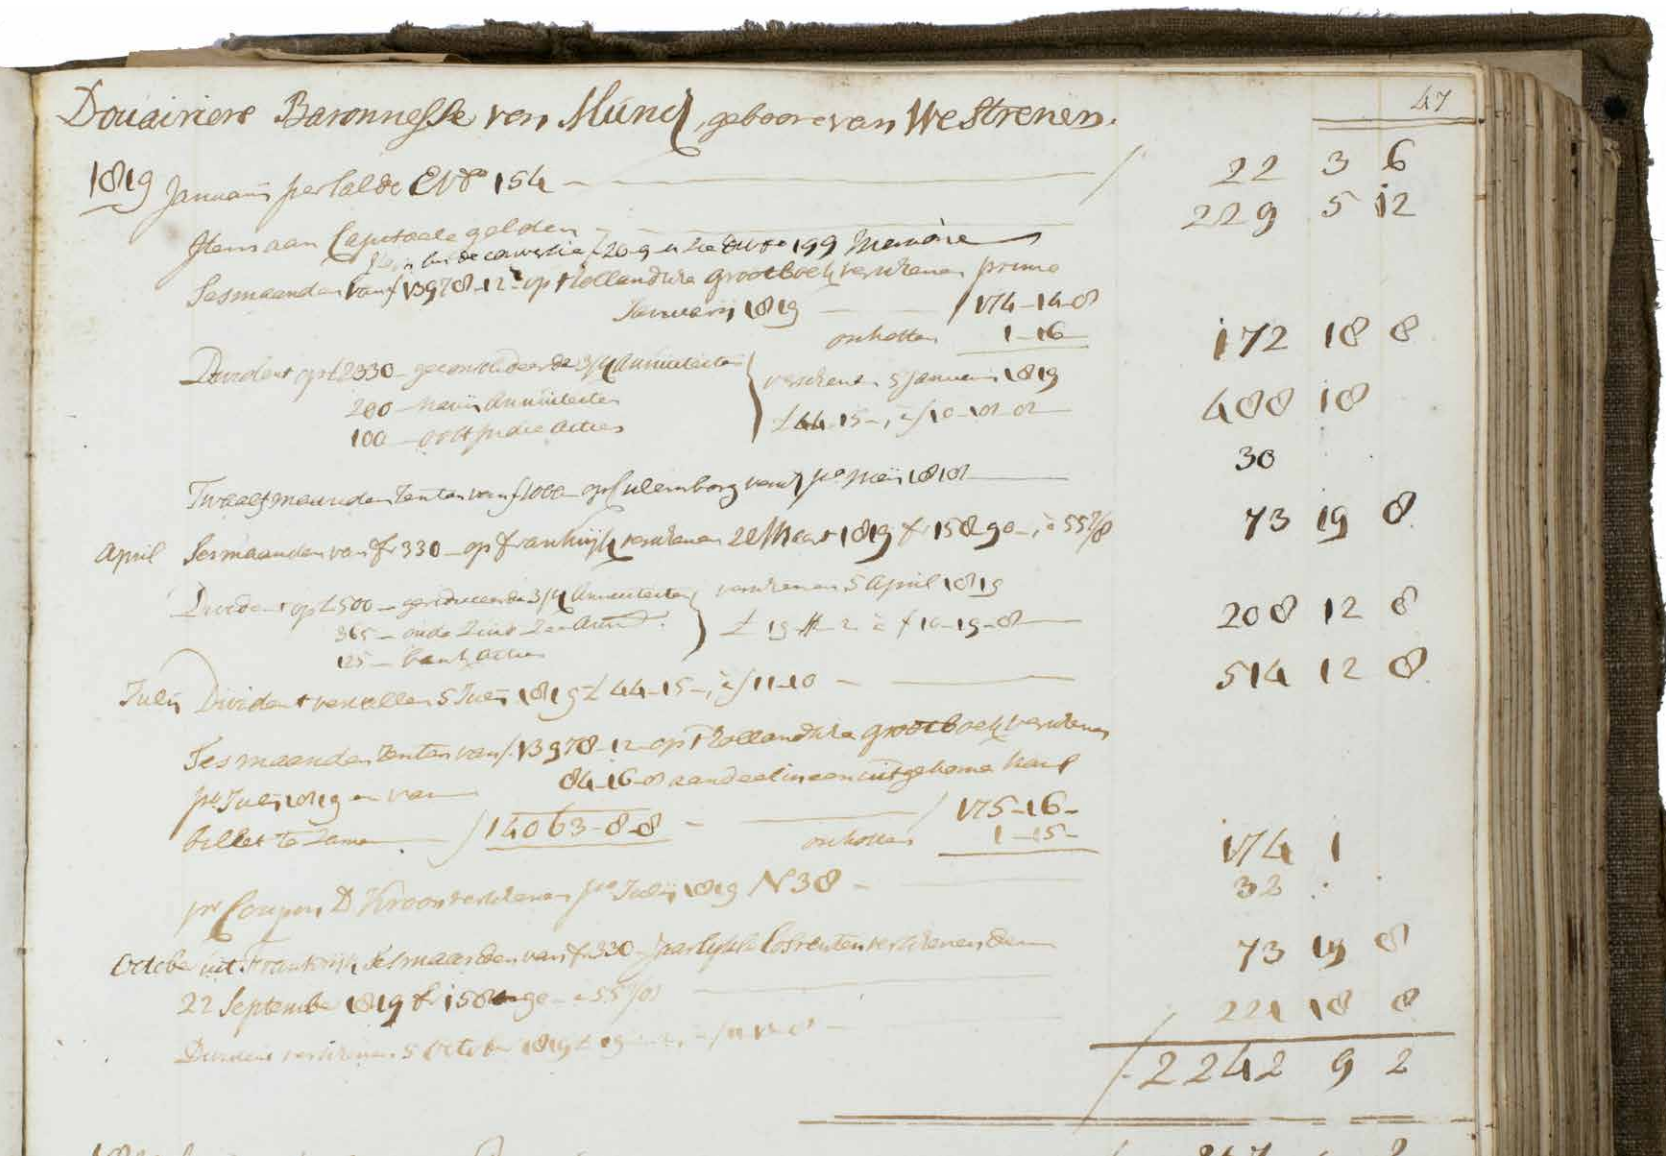 47
Douairiere Baronnesse van Münch, geboore van Westrenen.
1819 Januarij per Saldo 154 — ƒ 22 3 6
Item aan Capitaale gelden — 229 5 12
199 Memorie
Sesmaanden van ƒ 13978-12- op Hollandsche grootboek verschenen primo
Januarij 1819 — ƒ 174-14-8
onkosten 1-16- 172 18 8
Dividend op £ 2330 — geconsolideerde 3 Annuiteiten
200 — Annuiteiten verschenen 5 Januarij 1819
100 — Actien £ 44-15-, à ƒ 10-18-8 — 488 18
Twaalfmaanden Renten van ƒ 1000 — op Culemborg 1818 — 30
April Sesmaanden van fr 330 — op Frankrijk verschenen 22 Maart 1819 fr 158 90-, à 55 73 19 8
Dividend op £ 500 — gereduceerde 3 Annuiteiten verschenen 5 April 1819
365 — oude Zuid Zee £ 19 2 à ƒ 10-19-8 — 208 12 8
125 — bank Actien
Julij Dividend vervallen 5 Julij 1819 £ 44-15-, à ƒ 11-10 — 514 12 8
Sesmaanden Renten van ƒ 13978-12- op Hollandsche grootboek verschenen
po Julij 1819 en van 84-16-8 aandeel in een uitgekome kans
billet te zamen ƒ 14063-8-8 — ƒ 175-16-
onkosten 1-15- 174 1
pr Coupon D verschenen po Julij 1819 N 38 — 32
October uit Frankrijk Sesmaanden van fr 330 Jaarlijksche Losrenten verschenen den
22 September 1819 fr 158 90 — à 55 — 73 19 8
Dividend verschenen 5 October 1819 £ 19 — 221 18 8
ƒ 2242 9 2